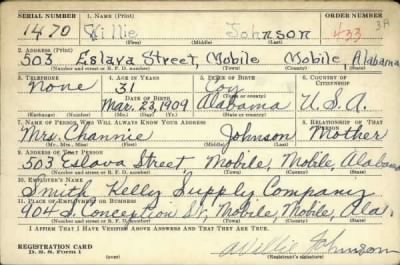 SERIAL NUMBER 1. NAME (Print) ORDER NUMBER
1470 Willie Johnson 433
(First) (Middle) (Last)
2. ADDRESS (Print)
503 Eslava Street, Mobile Mobile Alabama
(Number and street or R. F. D. number) (Town) (County) (State)
3. TELEPHONE 4. AGE IN YEARS 5. PLACE OF BIRTH 6. COUNTRY OF CITIZENSHIP
None 31 Coy
DATE OF BIRTH
Mar. 23, 1909 Alabama U.S.A.
(Exchange) (Number) (Mo.) (Day) (Yr.) (State or country)
7. NAME OF PERSON WHO WILL ALWAYS KNOW YOUR ADDRESS 8. RELATIONSHIP OF THAT PERSON
Mrs. Channie Johnson Mother
(Mr., Mrs., Miss) (First) (Middle) (Last)
9. ADDRESS OF THAT PERSON
503 Eslava Street, Mobile, Mobile, Alabama
(Number and street or R. F. D. number) (Town) (County) (State)
10. EMPLOYER'S NAME
Smith Kelly Supply Company
11. PLACE OF EMPLOYMENT OR BUSINESS
904 S Conception St., Mobile, Mobile, Ala.
(Number and street or R. F. D. number) (Town) (County) (State)
I AFFIRM THAT I HAVE VERIFIED ABOVE ANSWERS AND THAT THEY ARE TRUE.
REGISTRATION CARD
D. S. S. Form 1 (over) Willie Johnson
(Registrant's signature)